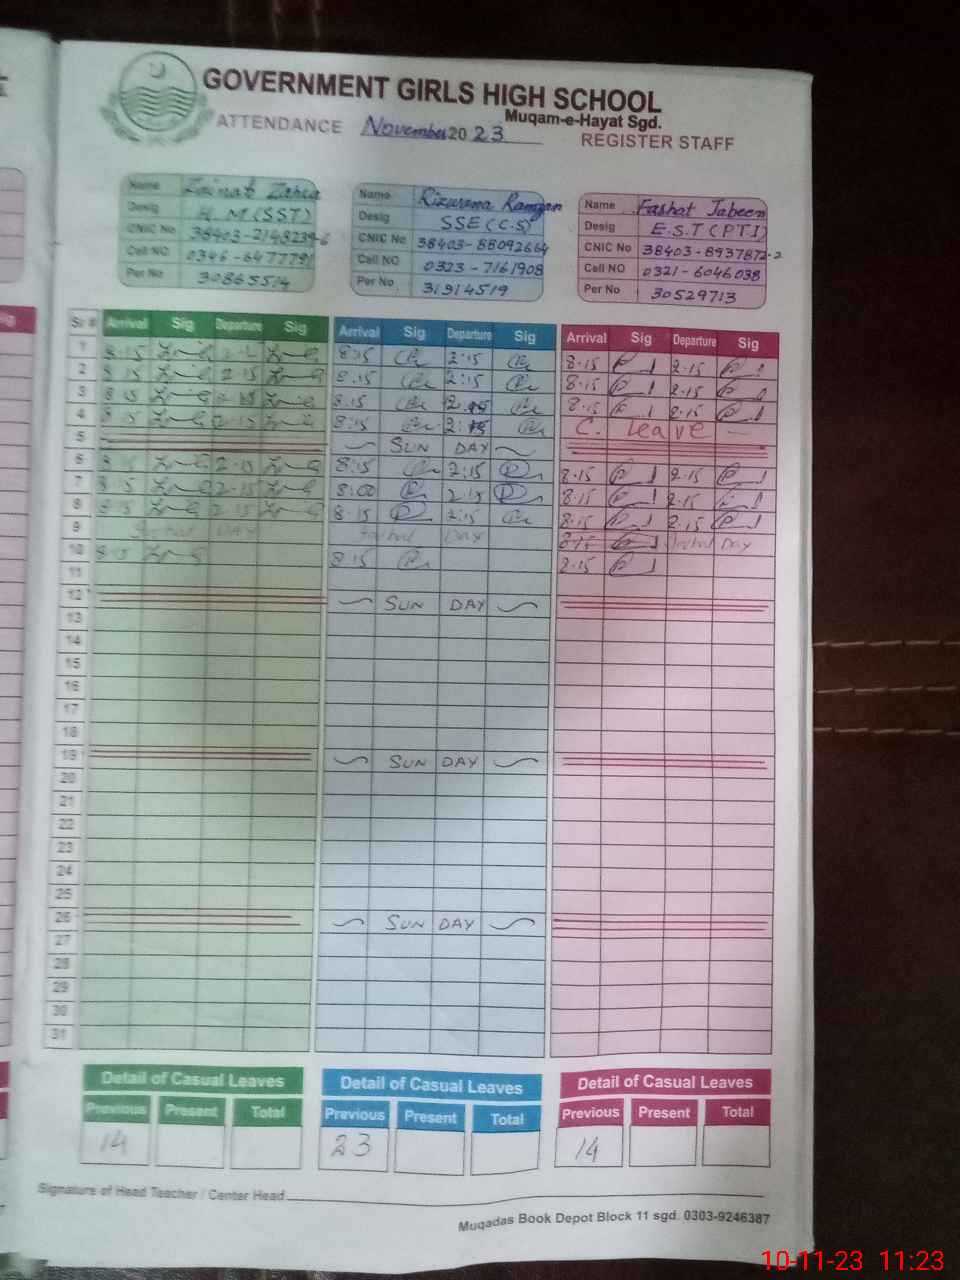 GOVERNMENT GIRLS HIGH SCHOOL
Muqam-e-Hayat Sgd.
ATTENDANCE November 2023 REGISTER STAFF
Name Zainab Zahra
Desig H.M (SST)
CNIC No 38403-2148239-6
Cell NO 0346-6477791
Per No 30865514
Name Rizwana Ramzan
Desig SSE (C.S)
CNIC No 38403-88092664
Cell NO 0323-7161908
Per No 31914519
Name Fashat Jabeen
Desig E.S.T (PTI)
CNIC No 38403-8937872-2
Cell NO 0321-6046038
Per No 30529713
Sr # Arrival Sig Departure Sig Arrival Sig Departure Sig Arrival Sig Departure Sig
1 8:15 8:15 2:15 8.15 2.15
2 8.15 2.15 8.15 2:15 8.15 2.15
3 8.15 8.15 2.15 8.15 2.15
4 8.15 2.15 8:15 2:15 C. leave
5 SUN DAY
6 8.15 2.15 8:15 2:15 8.15 2.15
7 8.15 2.15 8:00 2.15 8.15 2.15
8 8.15 2.15 8.15 2:15 8.15 2.15
9 DAY Day 8.15 Day
10 8.15 8.15 8.15
11
12 SUN DAY
13
14
15
16
17
18
19 SUN DAY
20
21
22
23
24
25
26 SUN DAY
27
28
29
30
31
Detail of Casual Leaves Detail of Casual Leaves Detail of Casual Leaves
Previous Present Total Previous Present Total Previous Present Total
14 23 14
Signature of Head Teacher / Center Head
Muqadas Book Depot Block 11 sgd. 0303-9246387
10-11-23 11:23